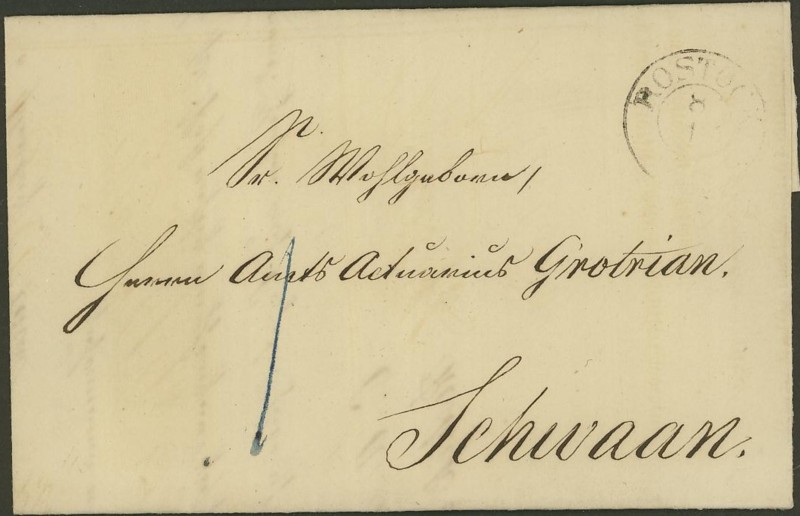 ROSTOCK
8
1
Sr. Wohlgeborn,
Herrn Amts Actuarius Grotrian.
Schwaan.
1